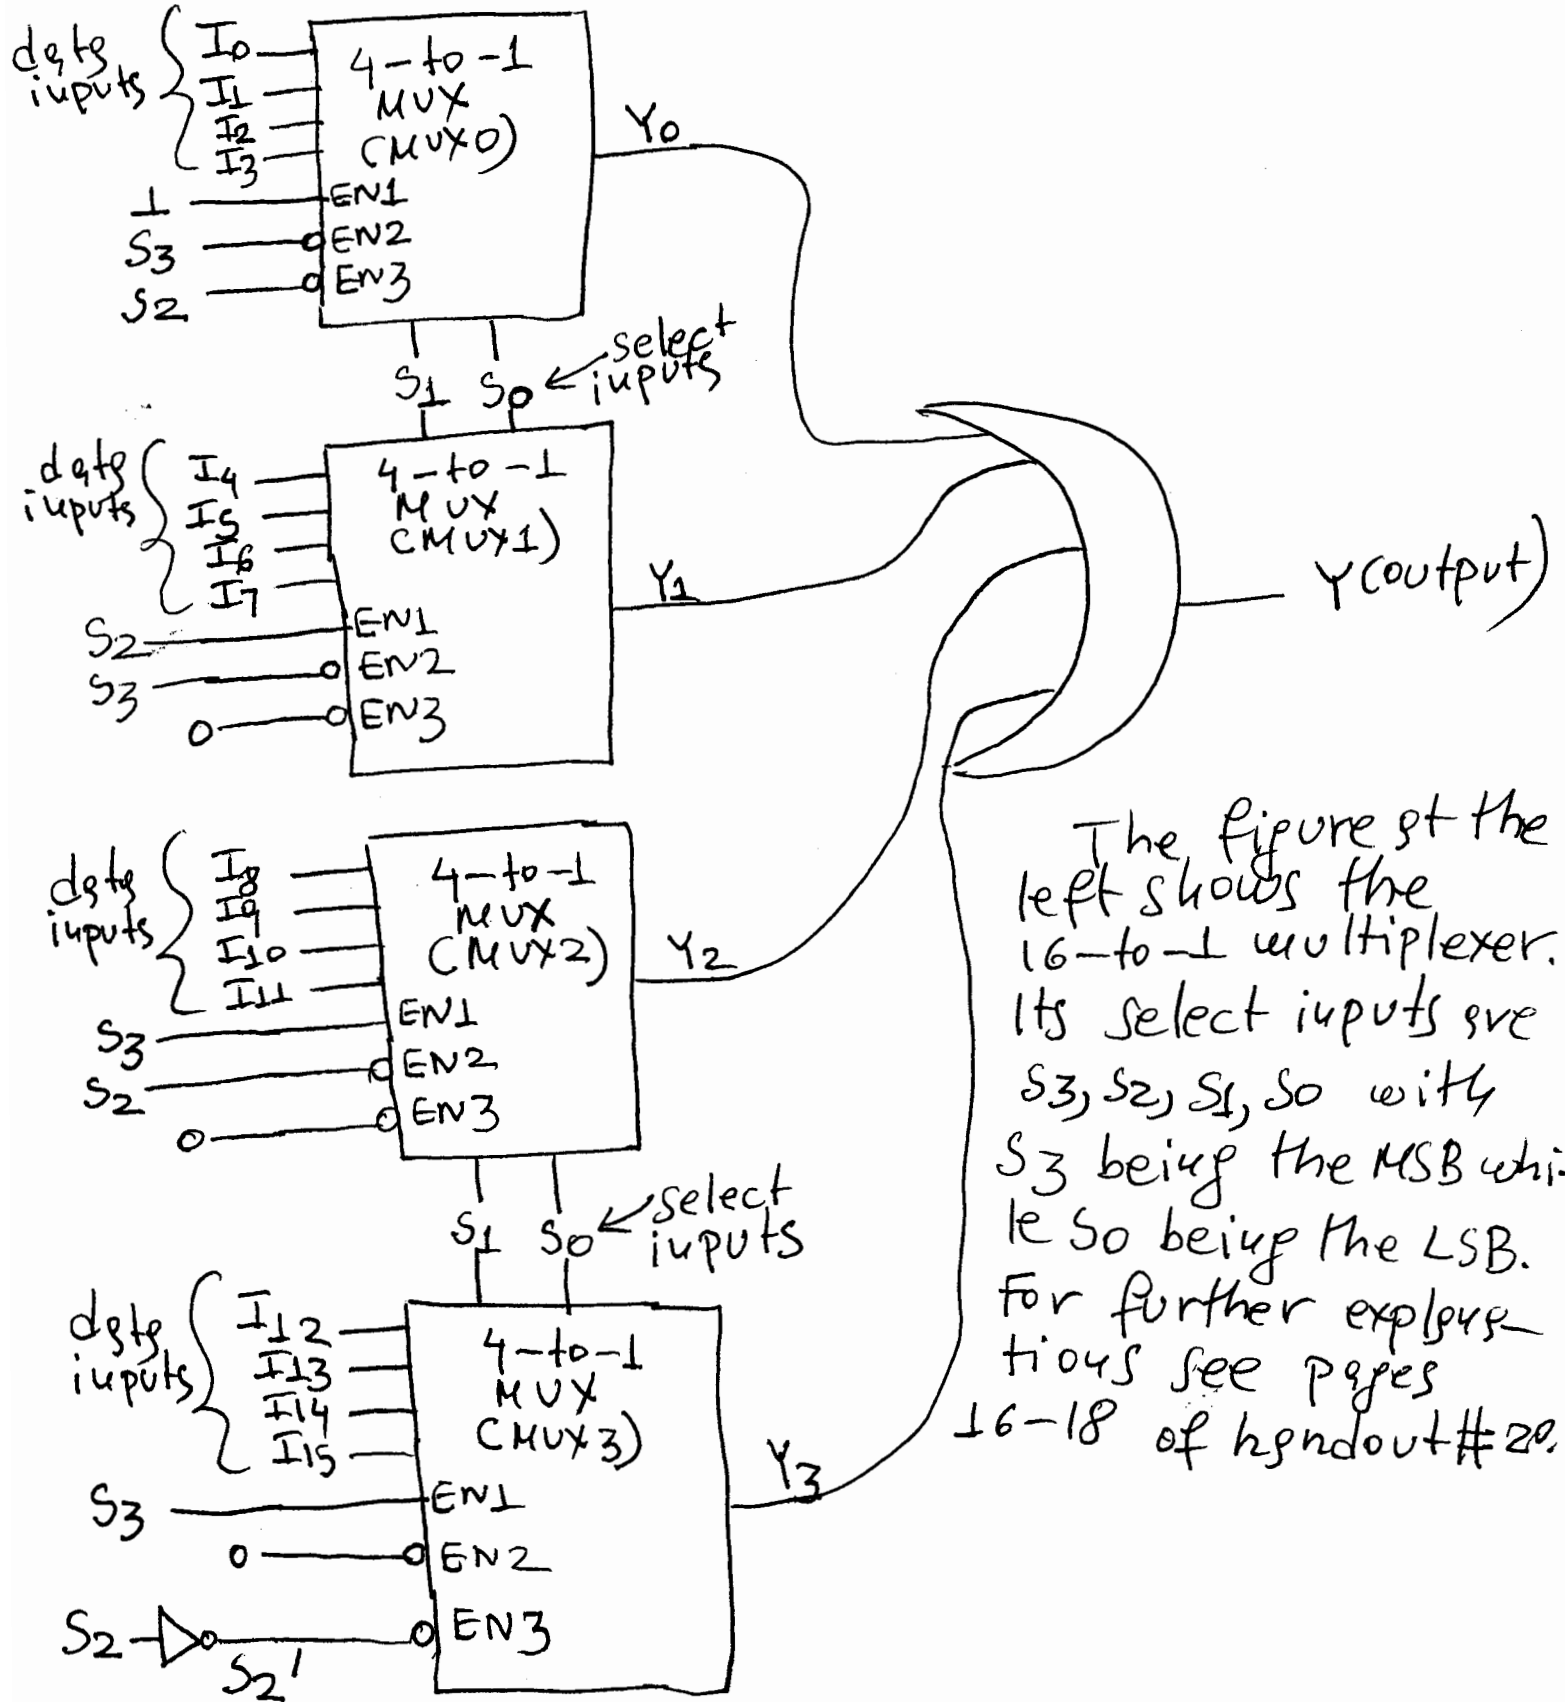 data
inputs
I0
I1
I2
I3
4-to-1
MUX
(MUX0)
1
EN1
S3
EN2
S2
EN3
Y0
S1 S0
select
inputs
data
inputs
I4
I5
I6
I7
4-to-1
MUX
(MUX1)
S2
EN1
S3
EN2
0
EN3
Y1
Y(output)
data
inputs
I8
I9
I10
I11
4-to-1
MUX
(MUX2)
S3
EN1
S2
EN2
0
EN3
Y2
S1 S0
select
inputs
data
inputs
I12
I13
I14
I15
4-to-1
MUX
(MUX3)
S3
EN1
0
EN2
S2
S2'
EN3
Y3
The figure at the
left shows the
16-to-1 multiplexer.
Its select inputs are
S3, S2, S1, S0 with
S3 being the MSB whi-
le S0 being the LSB.
For further explana-
tions see pages
16-18 of handout #20.